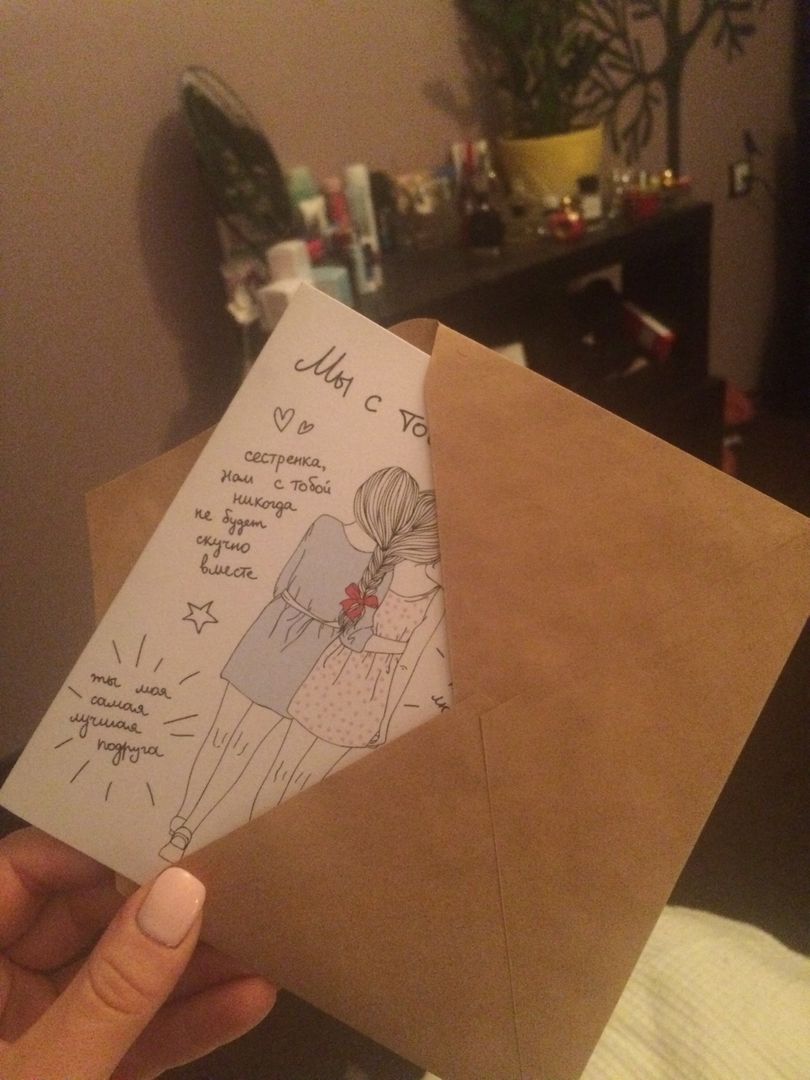 Мы с
сестренка,
нам с тобой
никогда
не будет
скучно
вместе
ты моя
самая
лучшая
подруга